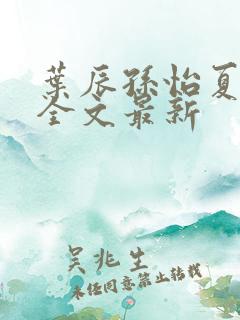 葉辰孫怡夏
全文最新
吴兆生
未经同意禁止转载